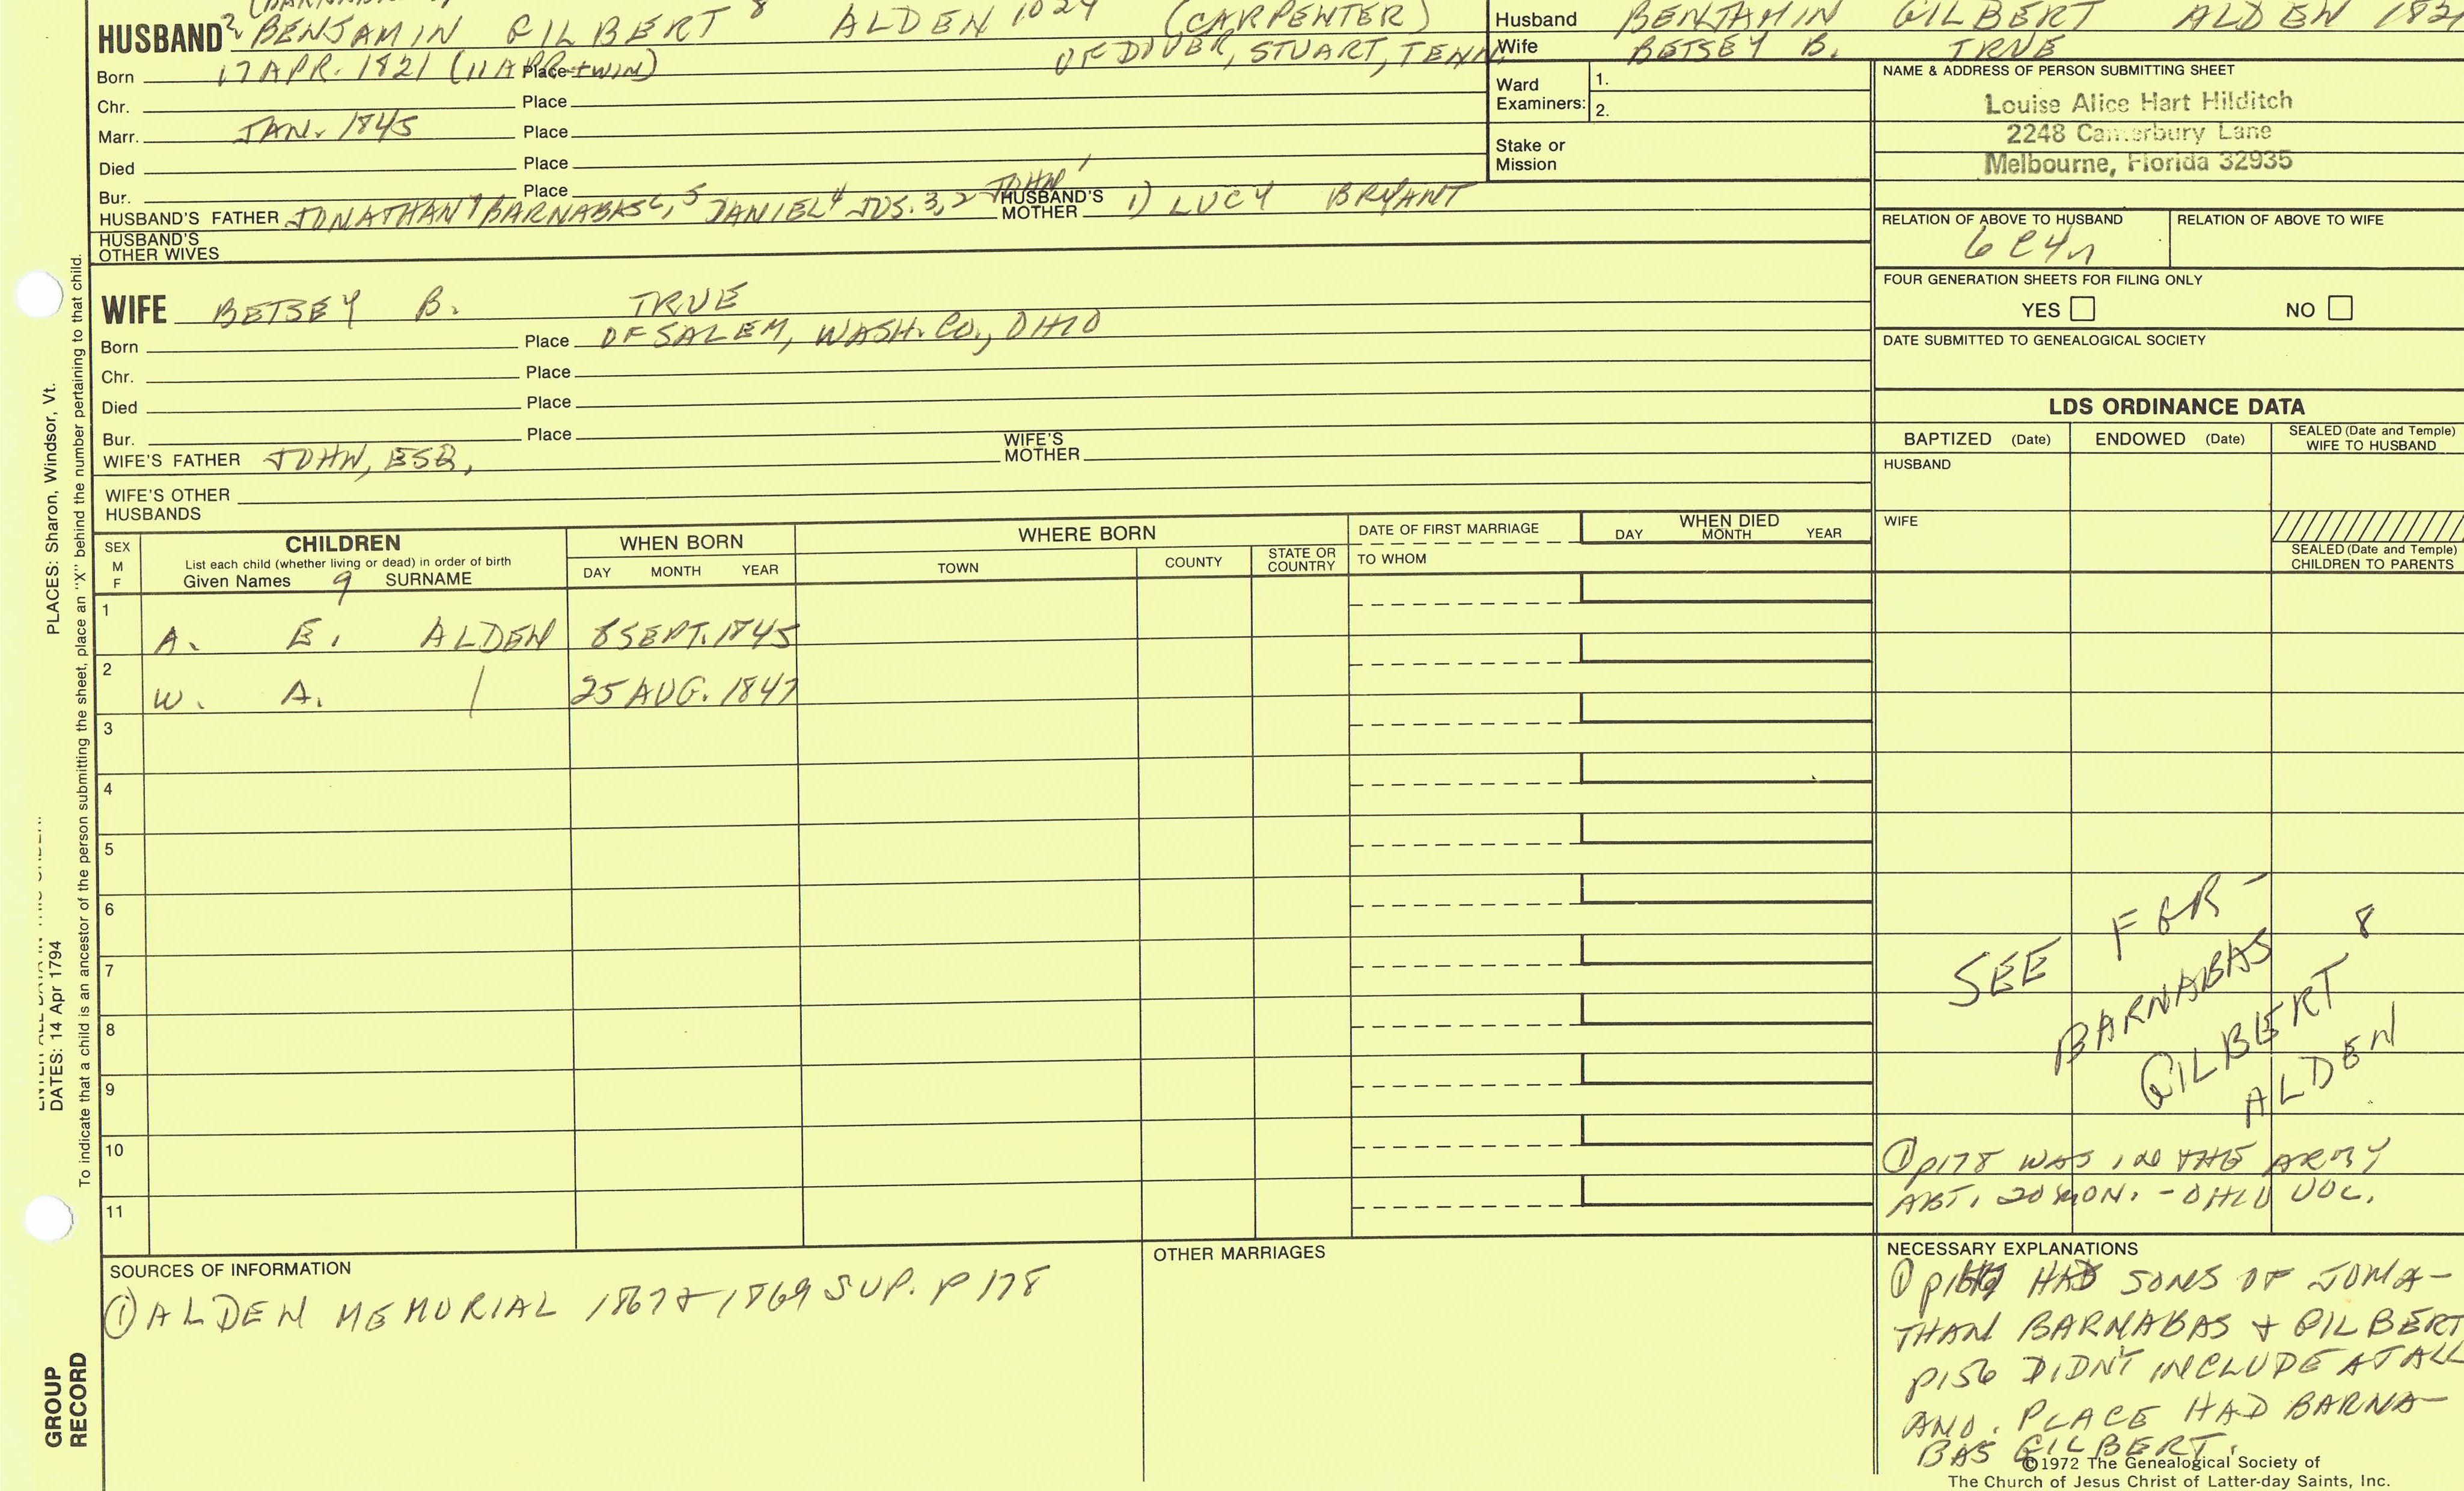 HUSBAND ? BENJAMIN GILBERT 8 ALDEN (CARPENTER)
Born 17 APR. 1821 (11 APR + WIN) Place OF DOVER, STUART, TENN.
Chr. Place
Marr. JAN. 1845 Place
Died Place
Bur. Place
HUSBAND'S FATHER JONATHAN 7 BARNABAS 6, 5 DANIEL 4 JOS. 3, 2 JOHN 1 HUSBAND'S MOTHER 1) LUCY BRYANT
HUSBAND'S OTHER WIVES
Husband BENJAMIN GILBERT ALDEN 182
Wife BETSEY B. TRUE
Ward Examiners: 1.
2.
Stake or Mission
NAME & ADDRESS OF PERSON SUBMITTING SHEET
Louise Alice Hart Hilditch
2248 Canterbury Lane
Melbourne, Florida 32935
RELATION OF ABOVE TO HUSBAND RELATION OF ABOVE TO WIFE
6C4r
FOUR GENERATION SHEETS FOR FILING ONLY
YES NO
DATE SUBMITTED TO GENEALOGICAL SOCIETY
WIFE BETSEY B. TRUE
Born Place OF SALEM, WASH. CO., OHIO
Chr. Place
Died Place
Bur. Place
WIFE'S FATHER JOHN, ESQ, WIFE'S MOTHER
WIFE'S OTHER HUSBANDS
LDS ORDINANCE DATA
BAPTIZED (Date) ENDOWED (Date) SEALED (Date and Temple) WIFE TO HUSBAND
HUSBAND
WIFE
SEALED (Date and Temple) CHILDREN TO PARENTS
SEX M F CHILDREN WHEN BORN WHERE BORN DATE OF FIRST MARRIAGE WHEN DIED
List each child (whether living or dead) in order of birth
Given Names 9 SURNAME DAY MONTH YEAR TOWN COUNTY STATE OR COUNTRY TO WHOM DAY MONTH YEAR
1 A. E. ALDEN 8 SEPT. 1845
2 W. A. | 25 AUG. 1847
3
4
5
6
7
8
9
10
11
SEE FGR -
BARNABAS
GILBERT 8
ALDEN
① p178 WAS IN THE ARMY
ABT. 20 MON. - OHIO VOL.
SOURCES OF INFORMATION
① ALDEN MEMORIAL 1867 + 1869 SUP. P 178
OTHER MARRIAGES
NECESSARY EXPLANATIONS
① HAD SONS OF JONA-
THAN BARNABAS + GILBERT
P156 DIDN'T INCLUDE AT ALL
AND. PLACE HAD BARNA-
BAS GILBERT.
©1972 The Genealogical Society of
The Church of Jesus Christ of Latter-day Saints, Inc.
PLACES: Sharon, Windsor, Vt.
DATES: 14 Apr 1794
To indicate that a child is an ancestor of the person submitting the sheet, place an "X" behind the number pertaining to that child.
GROUP
RECORD